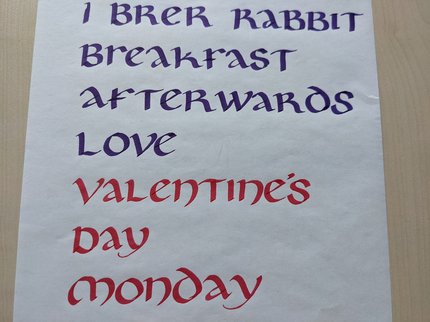 I BRER RABBIT
BREAKFAST
AFTERWARDS
LOVE
VALENTINE'S
DAY
MONDAY